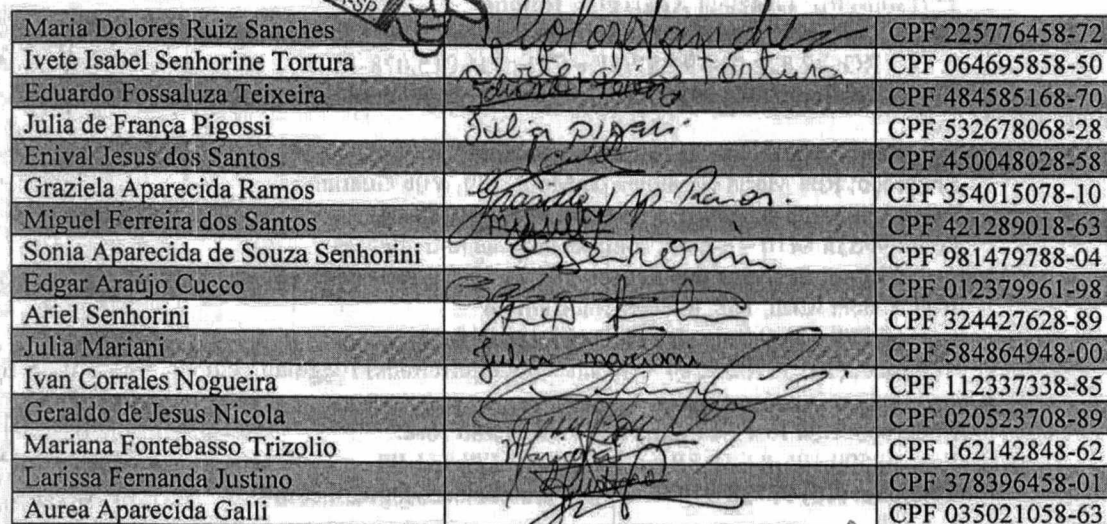 Maria Dolores Ruiz Sanches CPF 225776458-72
Ivete Isabel Senhorine Tortura Tortura CPF 064695858-50
Eduardo Fossaluza Teixeira CPF 484585168-70
Julia de França Pigossi Julia CPF 532678068-28
Enival Jesus dos Santos CPF 450048028-58
Graziela Aparecida Ramos Ramos CPF 354015078-10
Miguel Ferreira dos Santos CPF 421289018-63
Sonia Aparecida de Souza Senhorini CPF 981479788-04
Edgar Araújo Cucco CPF 012379961-98
Ariel Senhorini CPF 324427628-89
Julia Mariani Julia mariani CPF 584864948-00
Ivan Corrales Nogueira CPF 112337338-85
Geraldo de Jesus Nicola CPF 020523708-89
Mariana Fontebasso Trizolio CPF 162142848-62
Larissa Fernanda Justino CPF 378396458-01
Aurea Aparecida Galli CPF 035021058-63